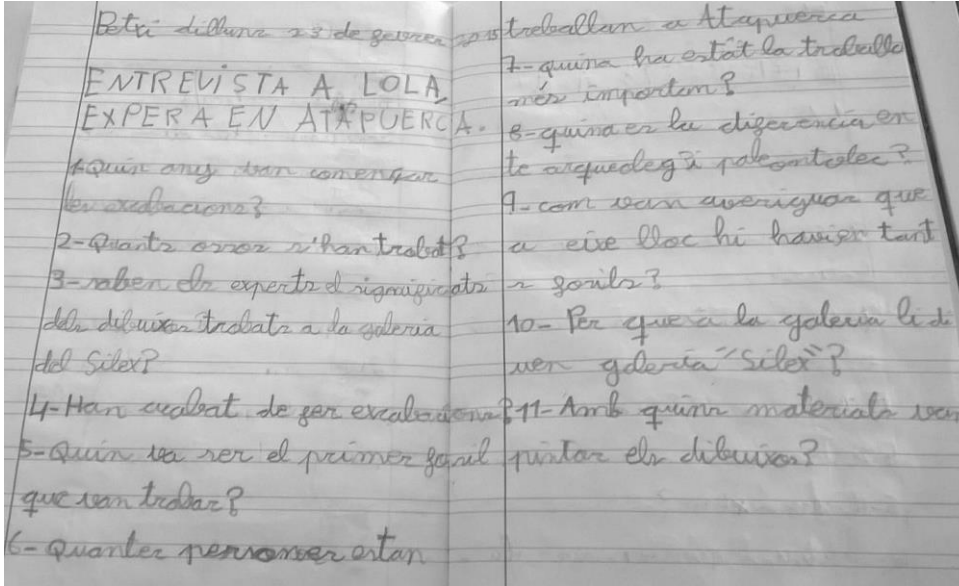 Betri dilluns 23 de gebrer 2015
ENTREVISTA A LOLA,
EXPERA EN ATAPUERCA.
1-Quin any van començar
les excabacions?
2-Quants ossos s'han trobat?
3-saben els experts el significats
dels dibuixos trobats a la galeria
del Silex?
4-Han acabat de fer excabacions?
5-Quin va ser el primer fosil
que van trobar?
6-Quantes persones estan
treballan a Atapuerca
7-quina ha estat la troballa
més importan?
8-quina es la diferencia en
te arqueoleg i paleontolec?
9-com van averiguar que
a eixe lloc hi havien tant
s fosils?
10-Per que a la galeria li di
uen galeria "Silex"?
11-Amb quins materials van
pintar els dibuixos?